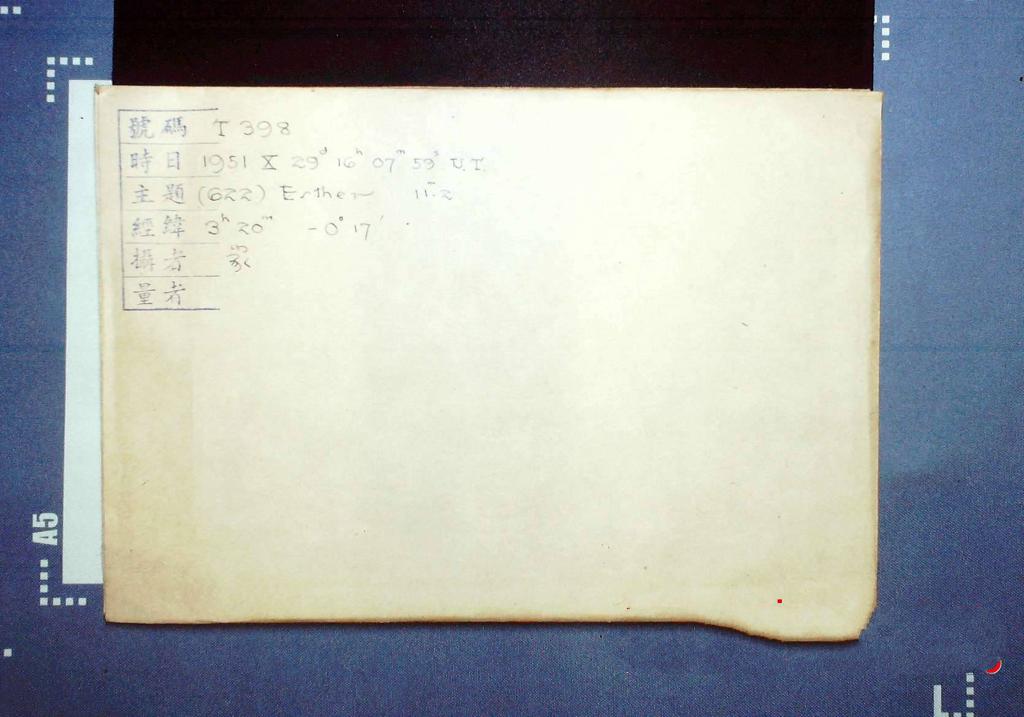 號碼 T 398
時日 1951 X 29ᵈ 16ʰ 07ᵐ 59ˢ U.T.
主題 (622) Esther 11ᵐ.2
經緯 3ʰ 20ᵐ -0° 17′
攝者
量者
A5
L